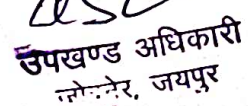 उपखण्ड अधिकारी
जयपुर